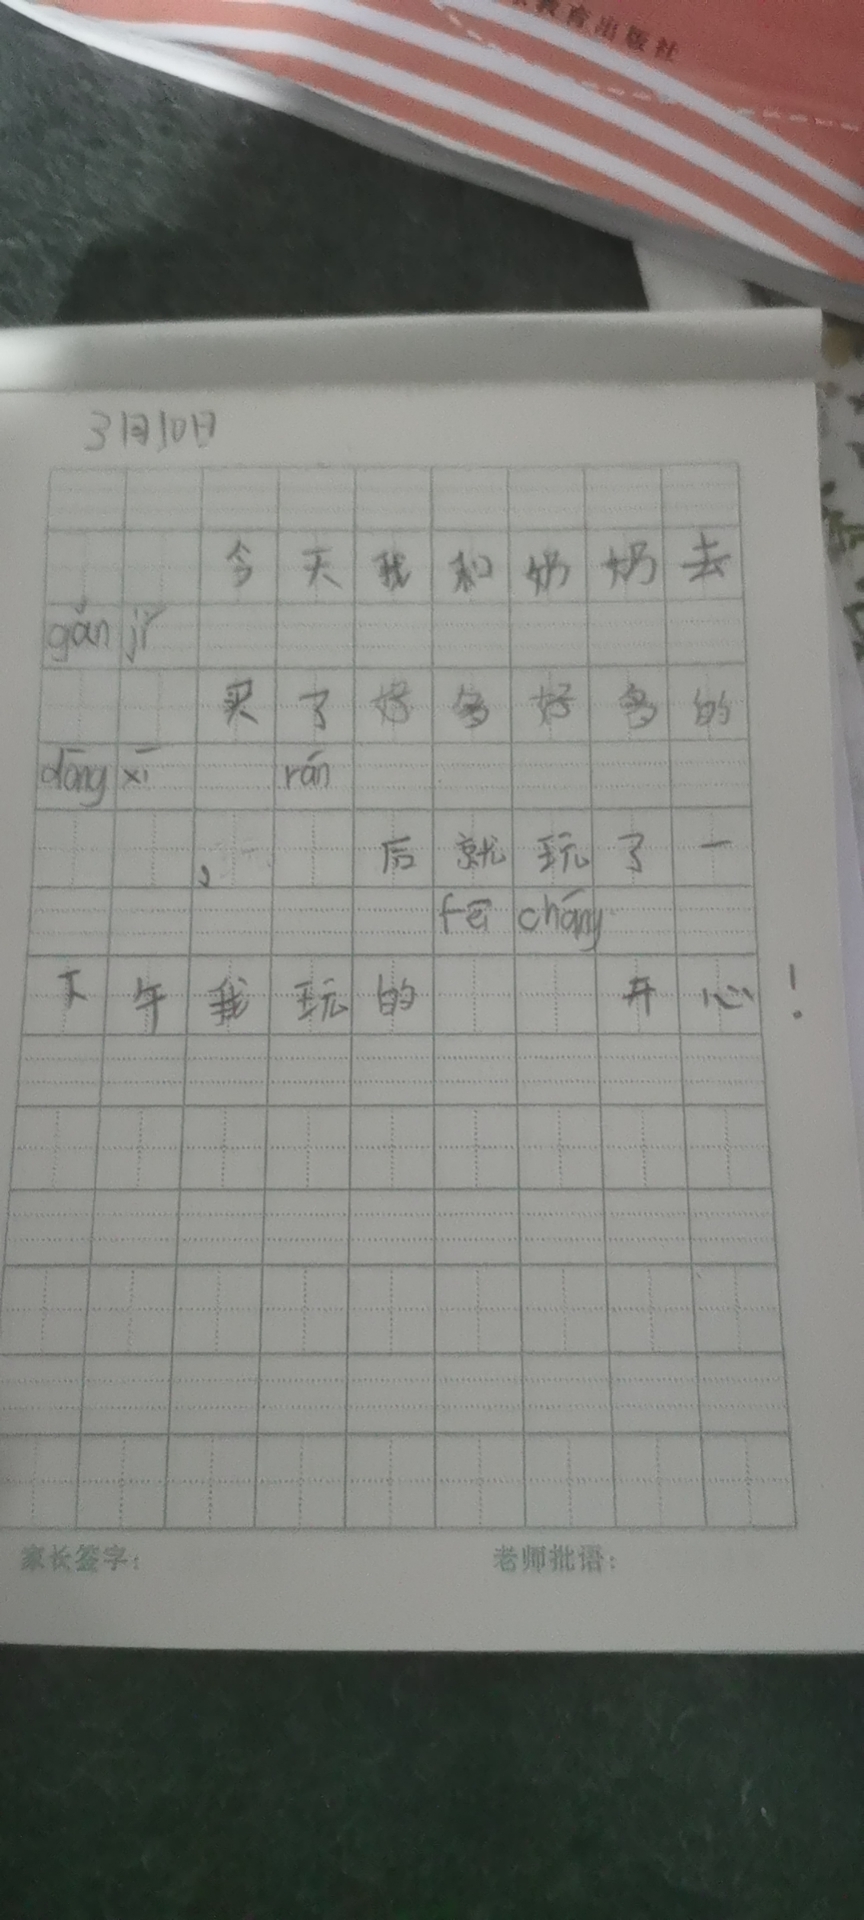 教育出版社
3月10日
今天我和奶奶去
gǎn jǐ
买了好多好多的
dōng xī rán
、后就玩了一
fēi cháng
下午我玩的开心！
家长签字：
老师批语：